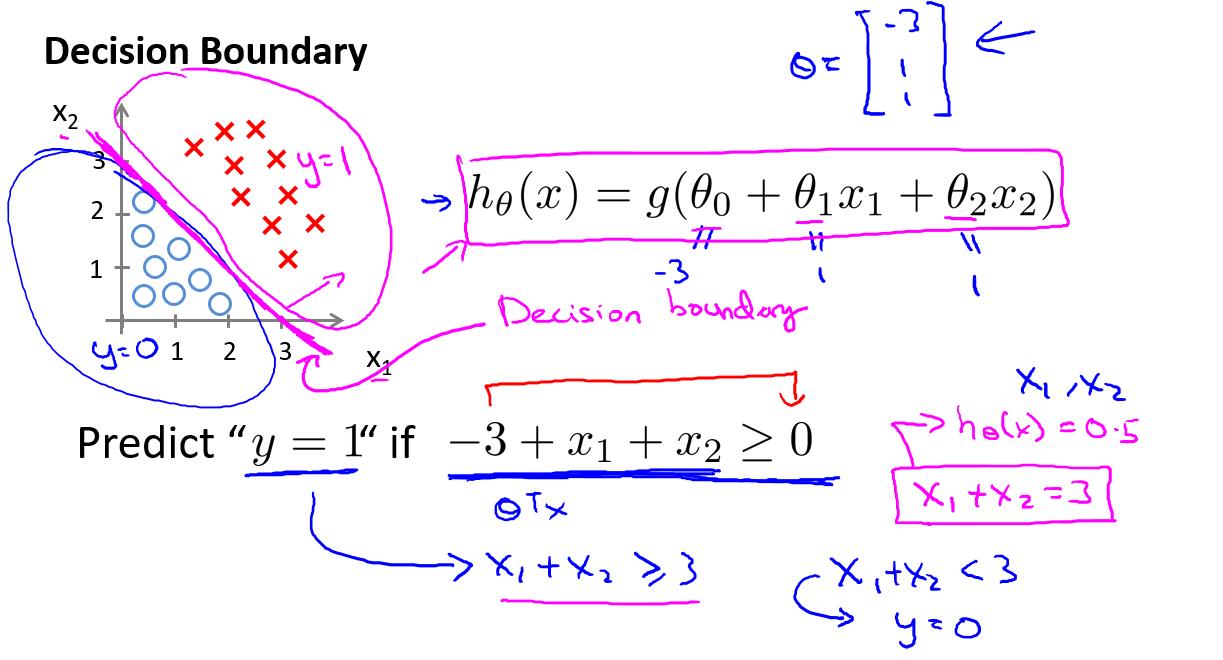 Decision Boundary
θ = [ -3 1 1 ]
x₂
3
2
1
y=1
y=0
1 2 3
x₁
h_θ(x) = g(θ₀ + θ₁x₁ + θ₂x₂)
-3 1 1
Decision boundary
x₁, x₂
h_θ(x) = 0.5
Predict “y = 1“ if −3 + x₁ + x₂ ≥ 0
x₁ + x₂ = 3
θᵀx
x₁ + x₂ ≥ 3
x₁ + x₂ < 3
y = 0